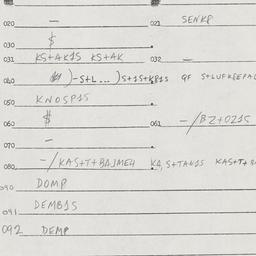 020 — 021 SENKP
030 $
031 KS+AK1S KS+AK 032 —
040 )-S+L...)
050 KNOSP1S
060 $ 061 -/BZ+021S
070 —
080 -/KAS+T+BAJMEH KA,S+TAK1S KAS+T+
090 DOMP
091 DEMB1S
092 DEMP